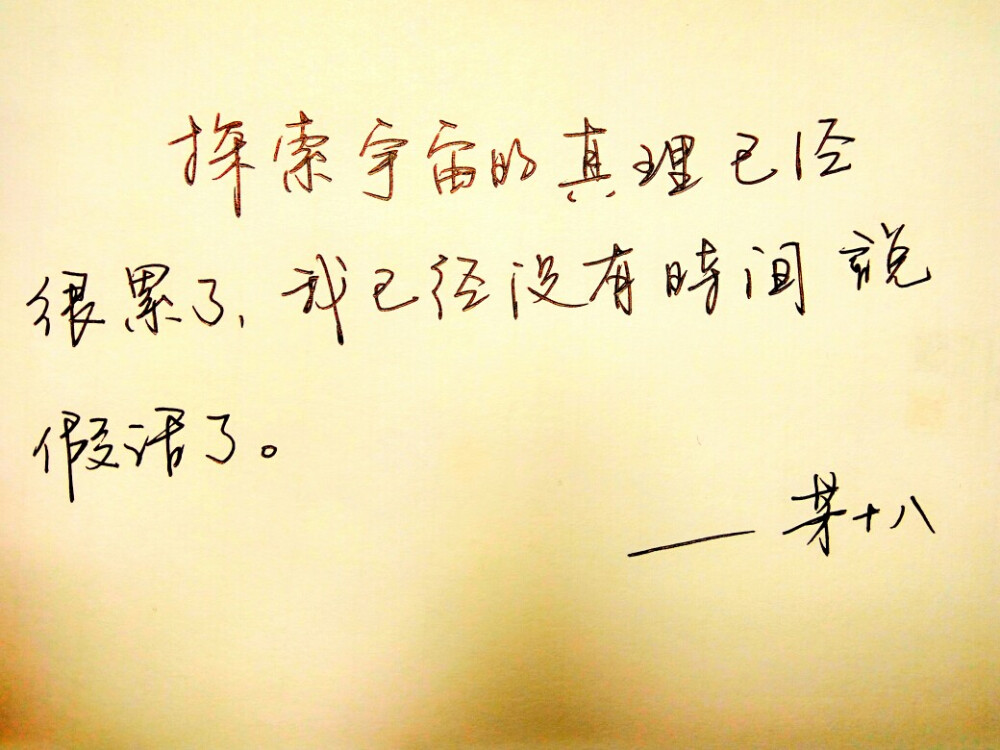 探索宇宙的真理已经
很累了,我已经没有時间説
假话了。
——某十八